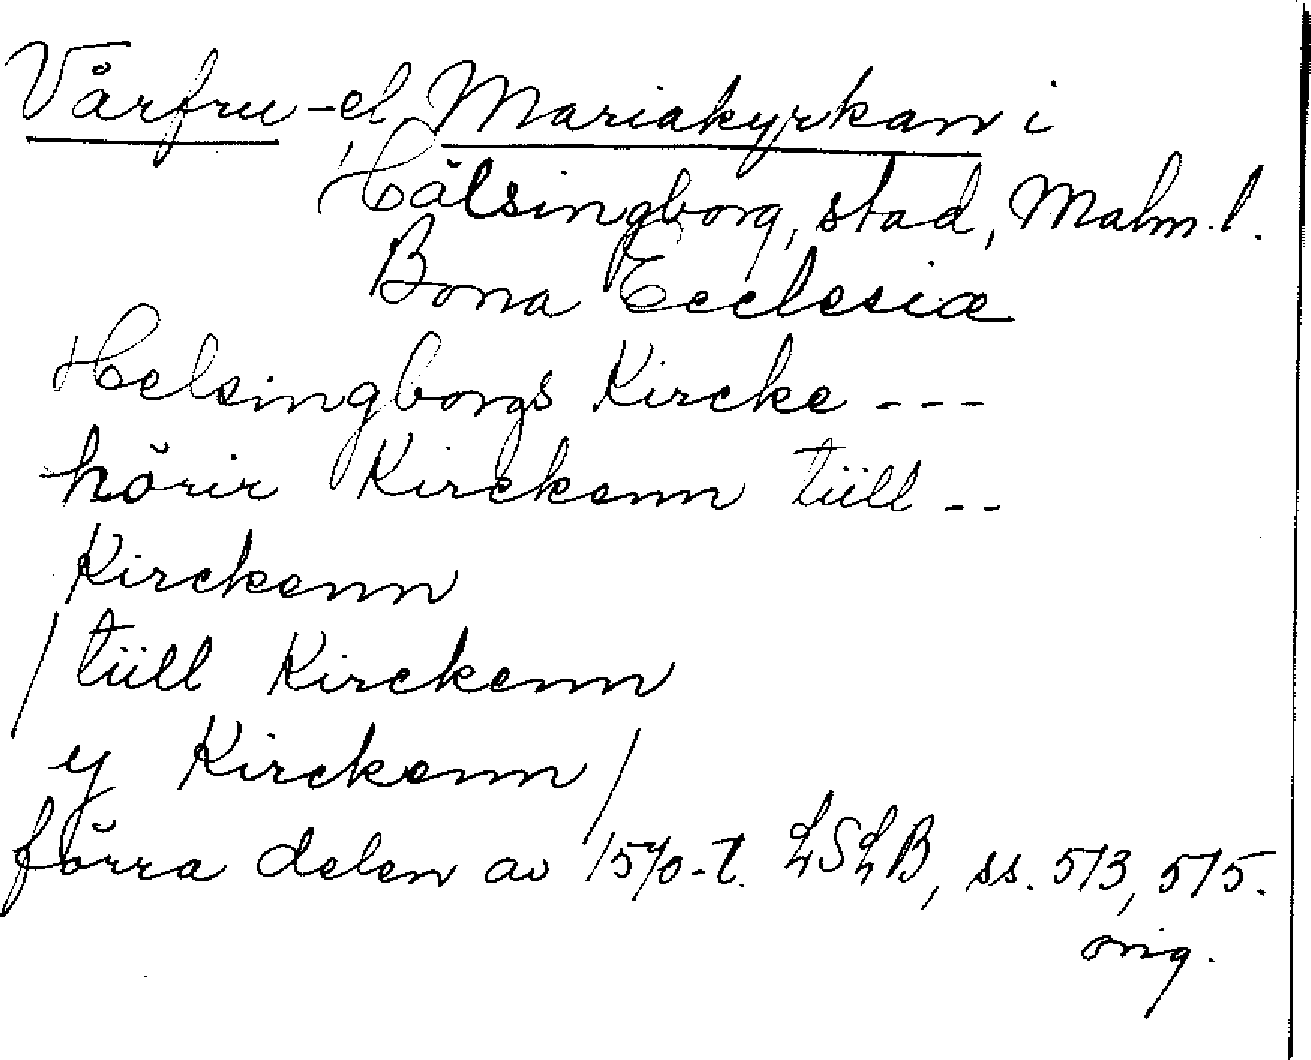 Vårfru - el Mariakyrkan i
Hälsingborg, stad, Malm. l.
Bona Ecclesiæ
Helsingborgs Kircke ---
hörir Kirckenn tiill --
Kirckenn
/ tiill Kirckenn
y Kirckenn /
förra delen av 1570-t. LSLB, ss. 513, 515.
orig.